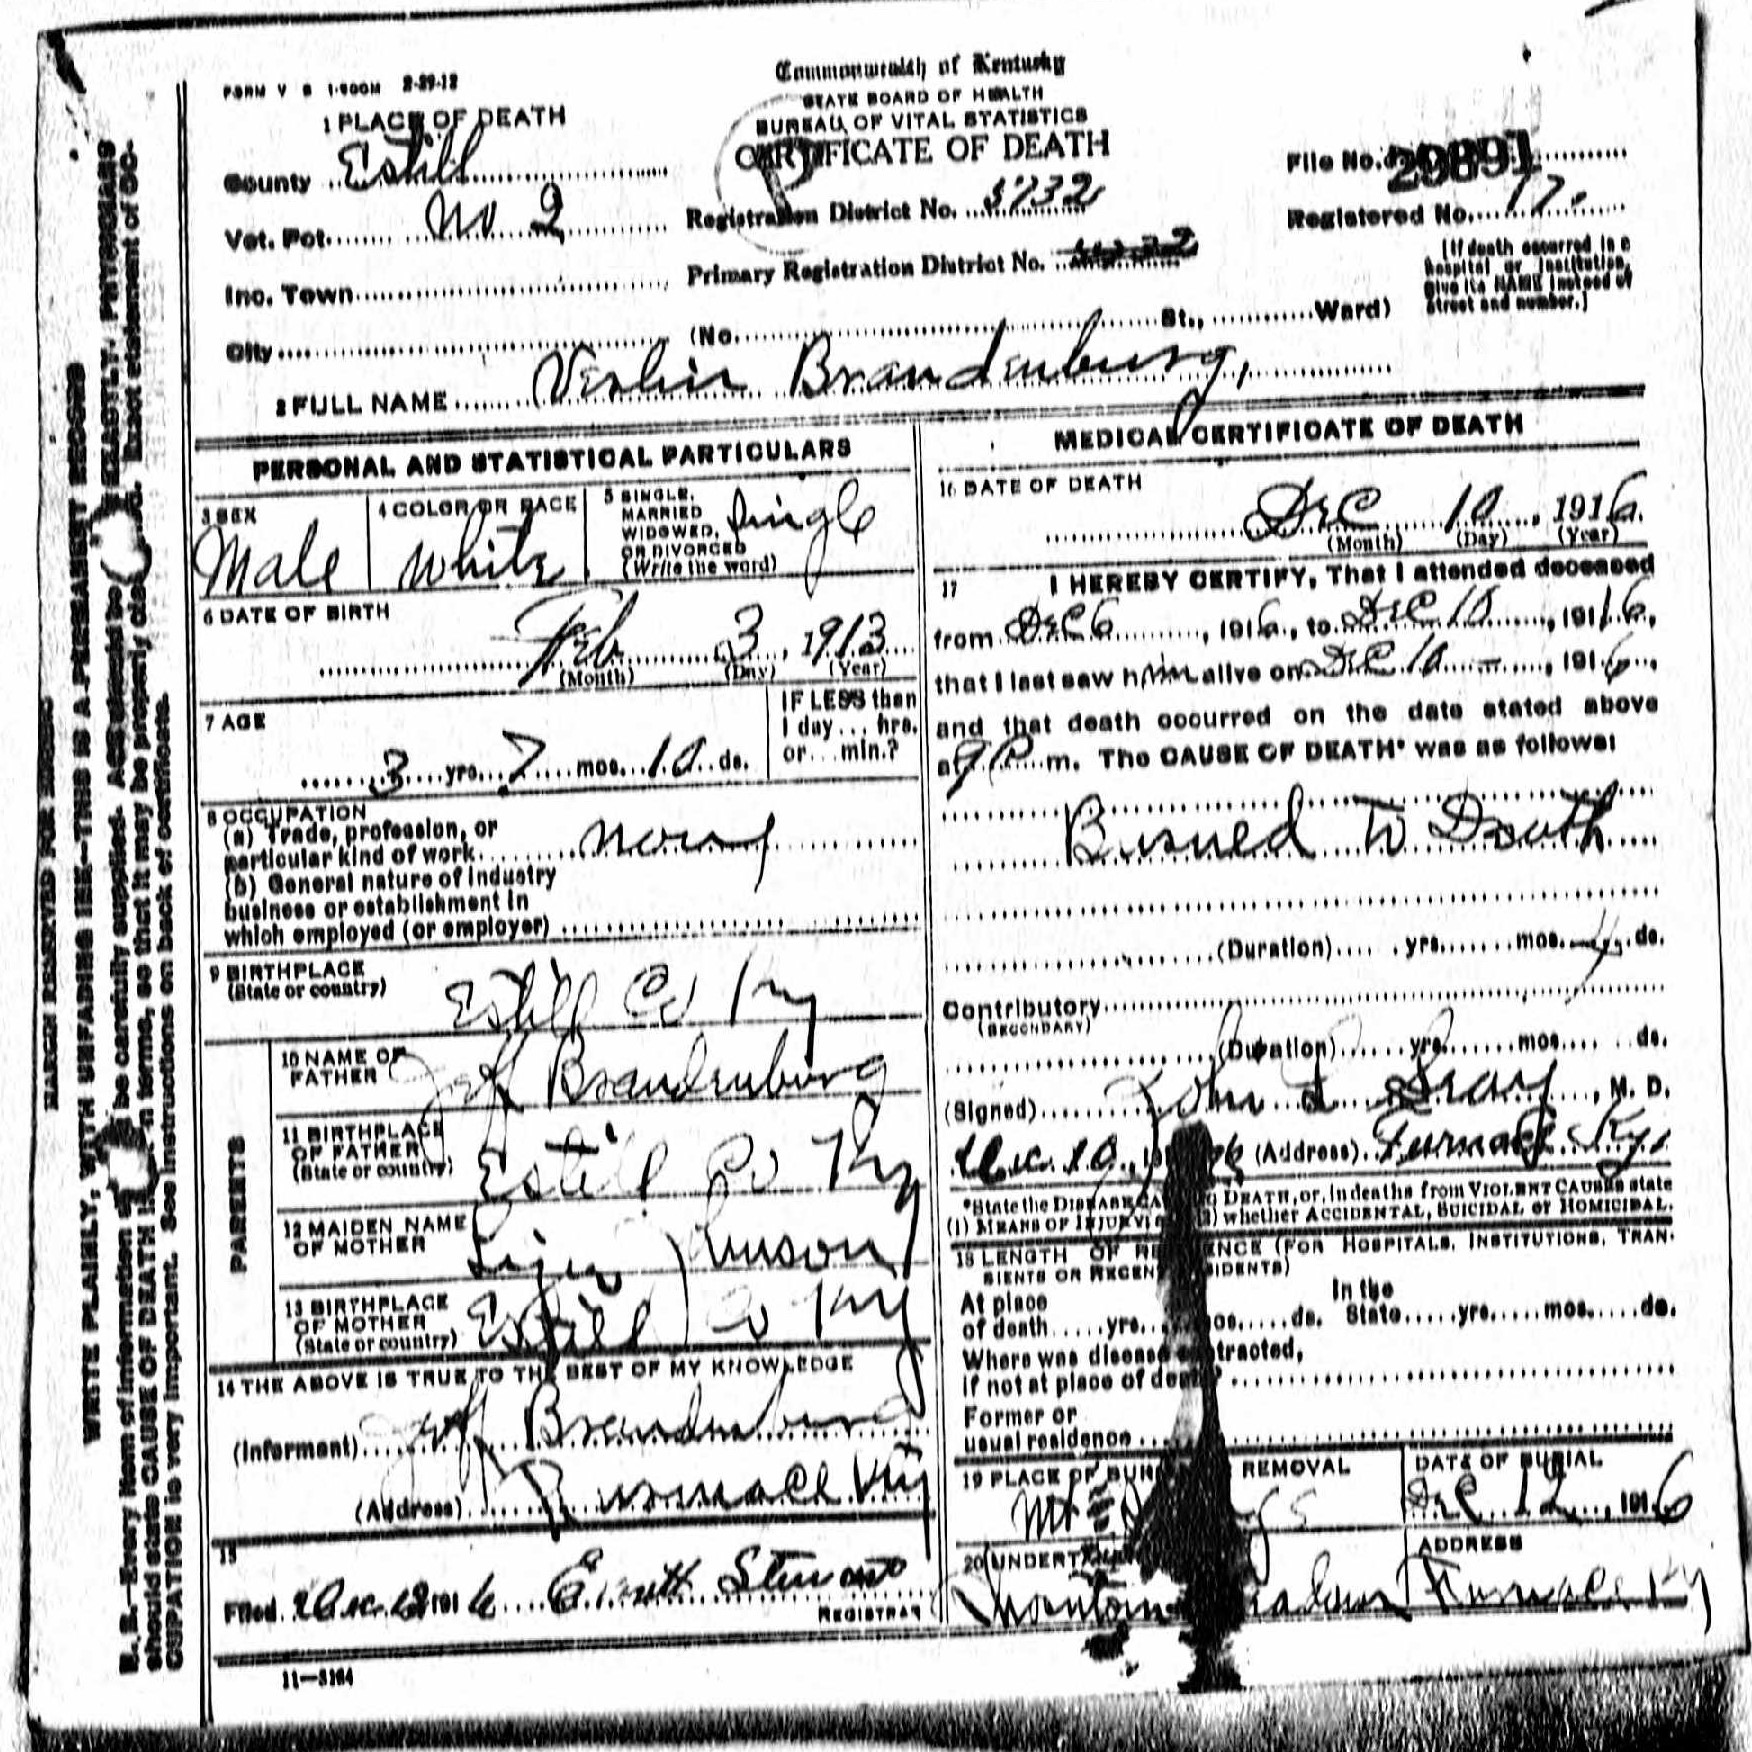 FORM V S 1-500M 2-29-12
Commonwealth of Kentucky
STATE BOARD OF HEALTH
BUREAU OF VITAL STATISTICS
CERTIFICATE OF DEATH
1 PLACE OF DEATH
County Estill
Vot. Pct. No 2
Inc. Town
City
Registration District No.
Primary Registration District No.
(No. St., Ward)
File No. 29891
Registered No. 17.
[If death occurred in a
hospital or institution,
give its NAME instead of
street and number.]
2 FULL NAME Brandenburg,
PERSONAL AND STATISTICAL PARTICULARS
3 SEX
Male
4 COLOR OR RACE
White
5 SINGLE,
MARRIED
WIDOWED,
OR DIVORCED
(Write the word)
Single
6 DATE OF BIRTH
Feb 3, 1913
(Month) (Day) (Year)
7 AGE
3 yrs. 7 mos. 10 ds.
IF LESS than
1 day... hrs.
or... min.?
8 OCCUPATION
(a) Trade, profession, or
particular kind of work
(b) General nature of industry
business or establishment in
which employed (or employer)
9 BIRTHPLACE
(State or country)
Estill Co Ky
PARENTS
10 NAME OF
FATHER
Brandenburg
11 BIRTHPLACE
OF FATHER
(State or country)
Estill Co Ky
12 MAIDEN NAME
OF MOTHER
13 BIRTHPLACE
OF MOTHER
(State or country)
Estill Co Ky
14 THE ABOVE IS TRUE TO THE BEST OF MY KNOWLEDGE
(Informant) Brandenburg
(Address) Ky
15
Filed Dec. 12 1916
REGISTRAR
11-3184
MEDICAL CERTIFICATE OF DEATH
16 DATE OF DEATH
Dec 10, 1916
(Month) (Day) (Year)
17 I HEREBY CERTIFY, That I attended deceased
from Dec 6, 1916, to Dec 10, 1916,
that I last saw him alive on Dec 10, 1916,
and that death occurred on the date stated above
at 9 P m. The CAUSE OF DEATH* was as follows:
Burned to Death
(Duration) yrs. mos. 4 ds.
Contributory
(SECONDARY)
(Duration) yrs. mos. ds.
(Signed) John, M. D.
Dec. 10, (Address) Furnace Ky.
*State the DISEASE CAUSING DEATH, or, in deaths from VIOLENT CAUSES state
(1) MEANS OF INJURY; and (2) whether ACCIDENTAL, SUICIDAL or HOMICIDAL.
18 LENGTH OF RESIDENCE (FOR HOSPITALS, INSTITUTIONS, TRAN-
SIENTS OR RECENT RESIDENTS)
At place
of death yrs. mos. ds.
In the
State yrs. mos. ds.
Where was disease contracted,
if not at place of death?
Former or
usual residence
19 PLACE OF BURIAL OR REMOVAL
DATE OF BURIAL
Dec 12, 1916
20 UNDERTAKER
ADDRESS
Furnace Ky
MARGIN RESERVED FOR BINDING
WRITE PLAINLY, WITH UNFADING INK—THIS IS A PERMANENT RECORD
N. B.—Every item of information should be carefully supplied. AGE should be stated EXACTLY. PHYSICIANS
should state CAUSE OF DEATH in plain terms, so that it may be properly classified. Exact statement of OC-
CUPATION is very important. See instructions on back of certificate.